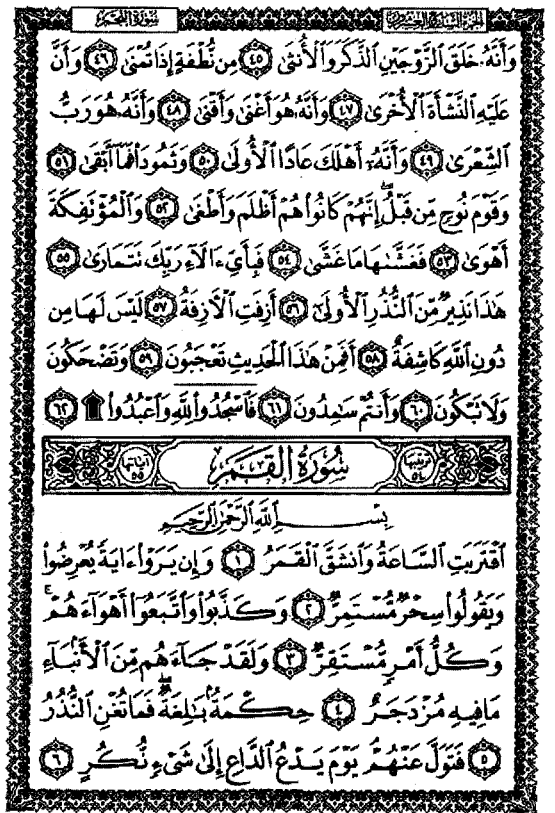 سورة النجم الجزء السابع والعشرون
وَأَنَّهُۥ خَلَقَ ٱلزَّوْجَيْنِ ٱلذَّكَرَ وَٱلْأُنثَىٰ ٤٥ مِن نُّطْفَةٍ إِذَا تُمْنَىٰ ٤٦ وَأَنَّ
عَلَيْهِ ٱلنَّشْأَةَ ٱلْأُخْرَىٰ ٤٧ وَأَنَّهُۥ هُوَ أَغْنَىٰ وَأَقْنَىٰ ٤٨ وَأَنَّهُۥ هُوَ رَبُّ
ٱلشِّعْرَىٰ ٤٩ وَأَنَّهُۥٓ أَهْلَكَ عَادًا ٱلْأُولَىٰ ٥٠ وَثَمُودَا۟ فَمَآ أَبْقَىٰ ٥١
وَقَوْمَ نُوحٍ مِّن قَبْلُ ۖ إِنَّهُمْ كَانُوا۟ هُمْ أَظْلَمَ وَأَطْغَىٰ ٥٢ وَٱلْمُؤْتَفِكَةَ
أَهْوَىٰ ٥٣ فَغَشَّىٰهَا مَا غَشَّىٰ ٥٤ فَبِأَىِّ ءَالَآءِ رَبِّكَ تَتَمَارَىٰ ٥٥
هَٰذَا نَذِيرٌ مِّنَ ٱلنُّذُرِ ٱلْأُولَىٰٓ ٥٦ أَزِفَتِ ٱلْءَازِفَةُ ٥٧ لَيْسَ لَهَا مِن
دُونِ ٱللَّهِ كَاشِفَةٌ ٥٨ أَفَمِنْ هَٰذَا ٱلْحَدِيثِ تَعْجَبُونَ ٥٩ وَتَضْحَكُونَ
وَلَا تَبْكُونَ ٦٠ وَأَنتُمْ سَٰمِدُونَ ٦١ فَٱسْجُدُوا۟ لِلَّهِ وَٱعْبُدُوا۟ ۩ ٦٢
ترتيبها ٥٤ سورة القمر آياتها ٥٥
بِسْمِ ٱللَّهِ ٱلرَّحْمَٰنِ ٱلرَّحِيمِ
ٱقْتَرَبَتِ ٱلسَّاعَةُ وَٱنشَقَّ ٱلْقَمَرُ ١ وَإِن يَرَوْا۟ ءَايَةً يُعْرِضُوا۟
وَيَقُولُوا۟ سِحْرٌ مُّسْتَمِرٌّ ٢ وَكَذَّبُوا۟ وَٱتَّبَعُوٓا۟ أَهْوَآءَهُمْ ۚ
وَكُلُّ أَمْرٍ مُّسْتَقِرٌّ ٣ وَلَقَدْ جَآءَهُم مِّنَ ٱلْأَنۢبَآءِ
مَا فِيهِ مُزْدَجَرٌ ٤ حِكْمَةٌۢ بَٰلِغَةٌ ۖ فَمَا تُغْنِ ٱلنُّذُرُ
٥ فَتَوَلَّ عَنْهُمْ ۘ يَوْمَ يَدْعُ ٱلدَّاعِ إِلَىٰ شَىْءٍ نُّكُرٍ ٦